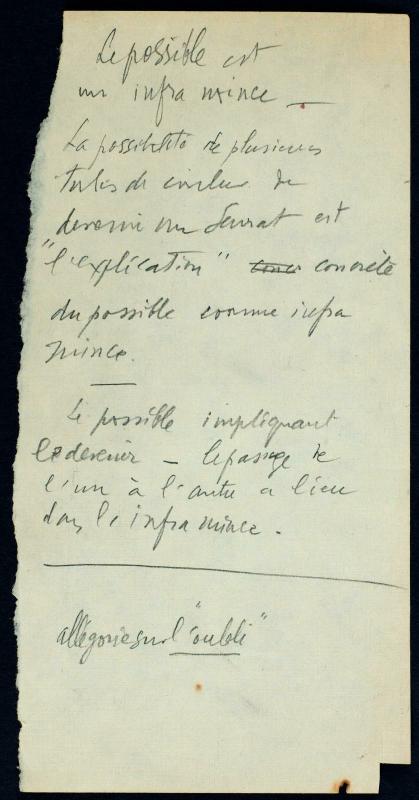 Le possible est
un infra mince —
La possibilité de plusieurs
tubes de couleur de
devenir un Seurat est
"l'explication" concrète
du possible comme infra
mince.
Le possible impliquant
le devenir — le passage de
l'un à l'autre a lieu
dans l'infra mince.
allégorie sur l'"oubli"